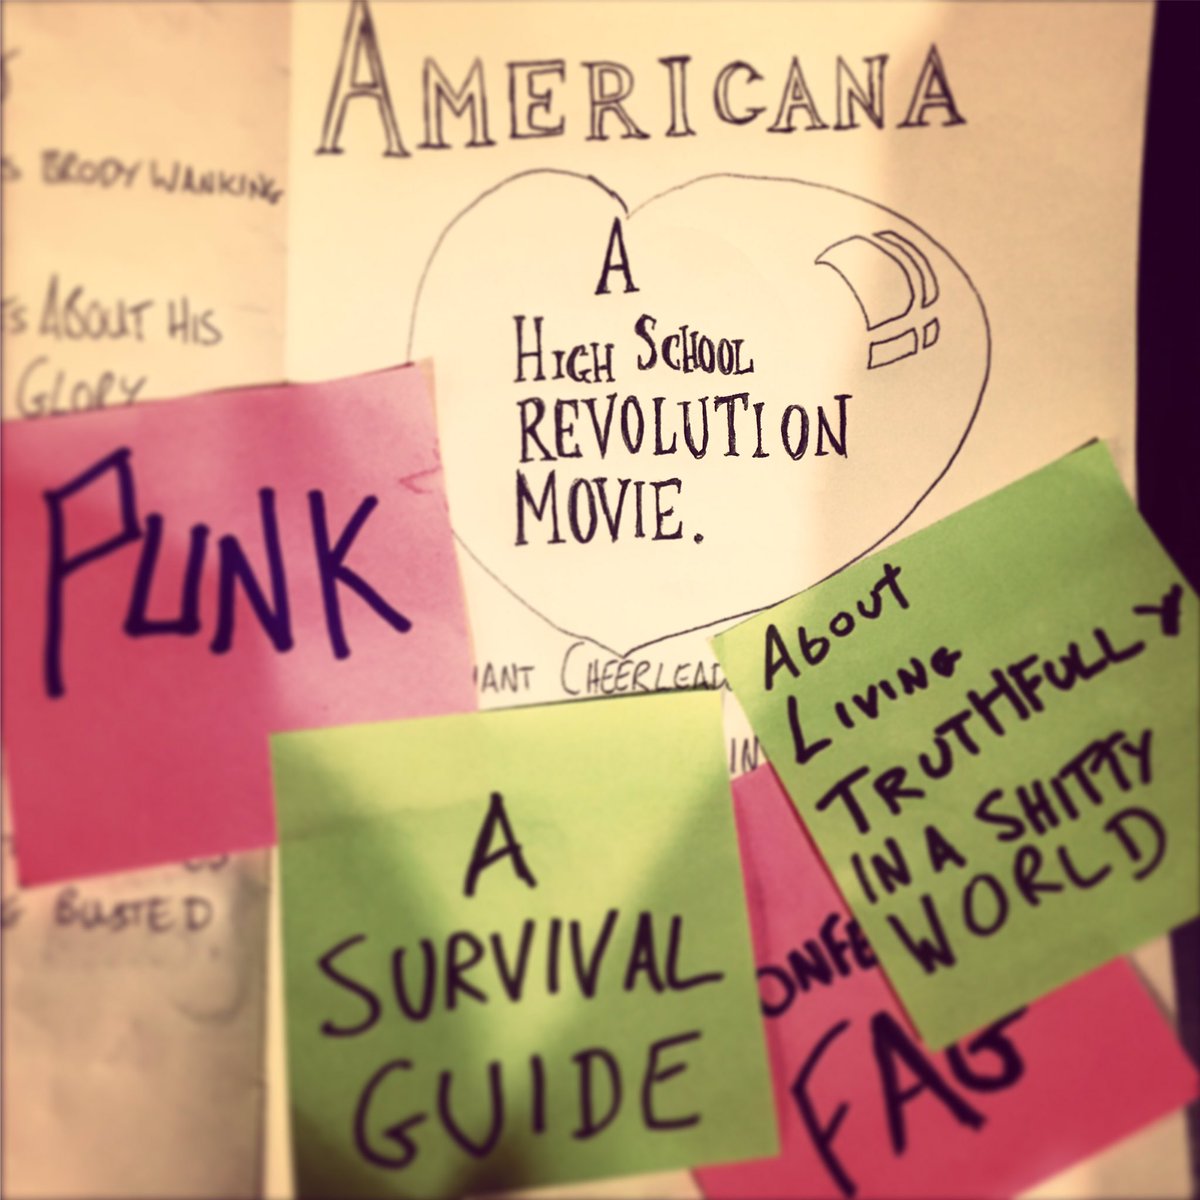 AMERICANA
A
HIGH SCHOOL
REVOLUTION
MOVIE.
BRODY WANKING
ABOUT HIS
GLORY
PUNK
CHEERLEAD
IN
BUSTED
A
SURVIVAL
GUIDE
ABOUT
LIVING
TRUTHFULLY
IN A SHITTY
WORLD
ONFE
FAG